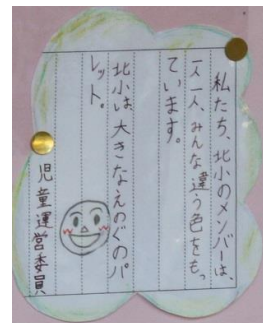 私たち、北小のメンバーは、
一人一人、みんな違う色をもっ
ています。
北小は、大きなえのぐのパ
レット。
児童運営委員